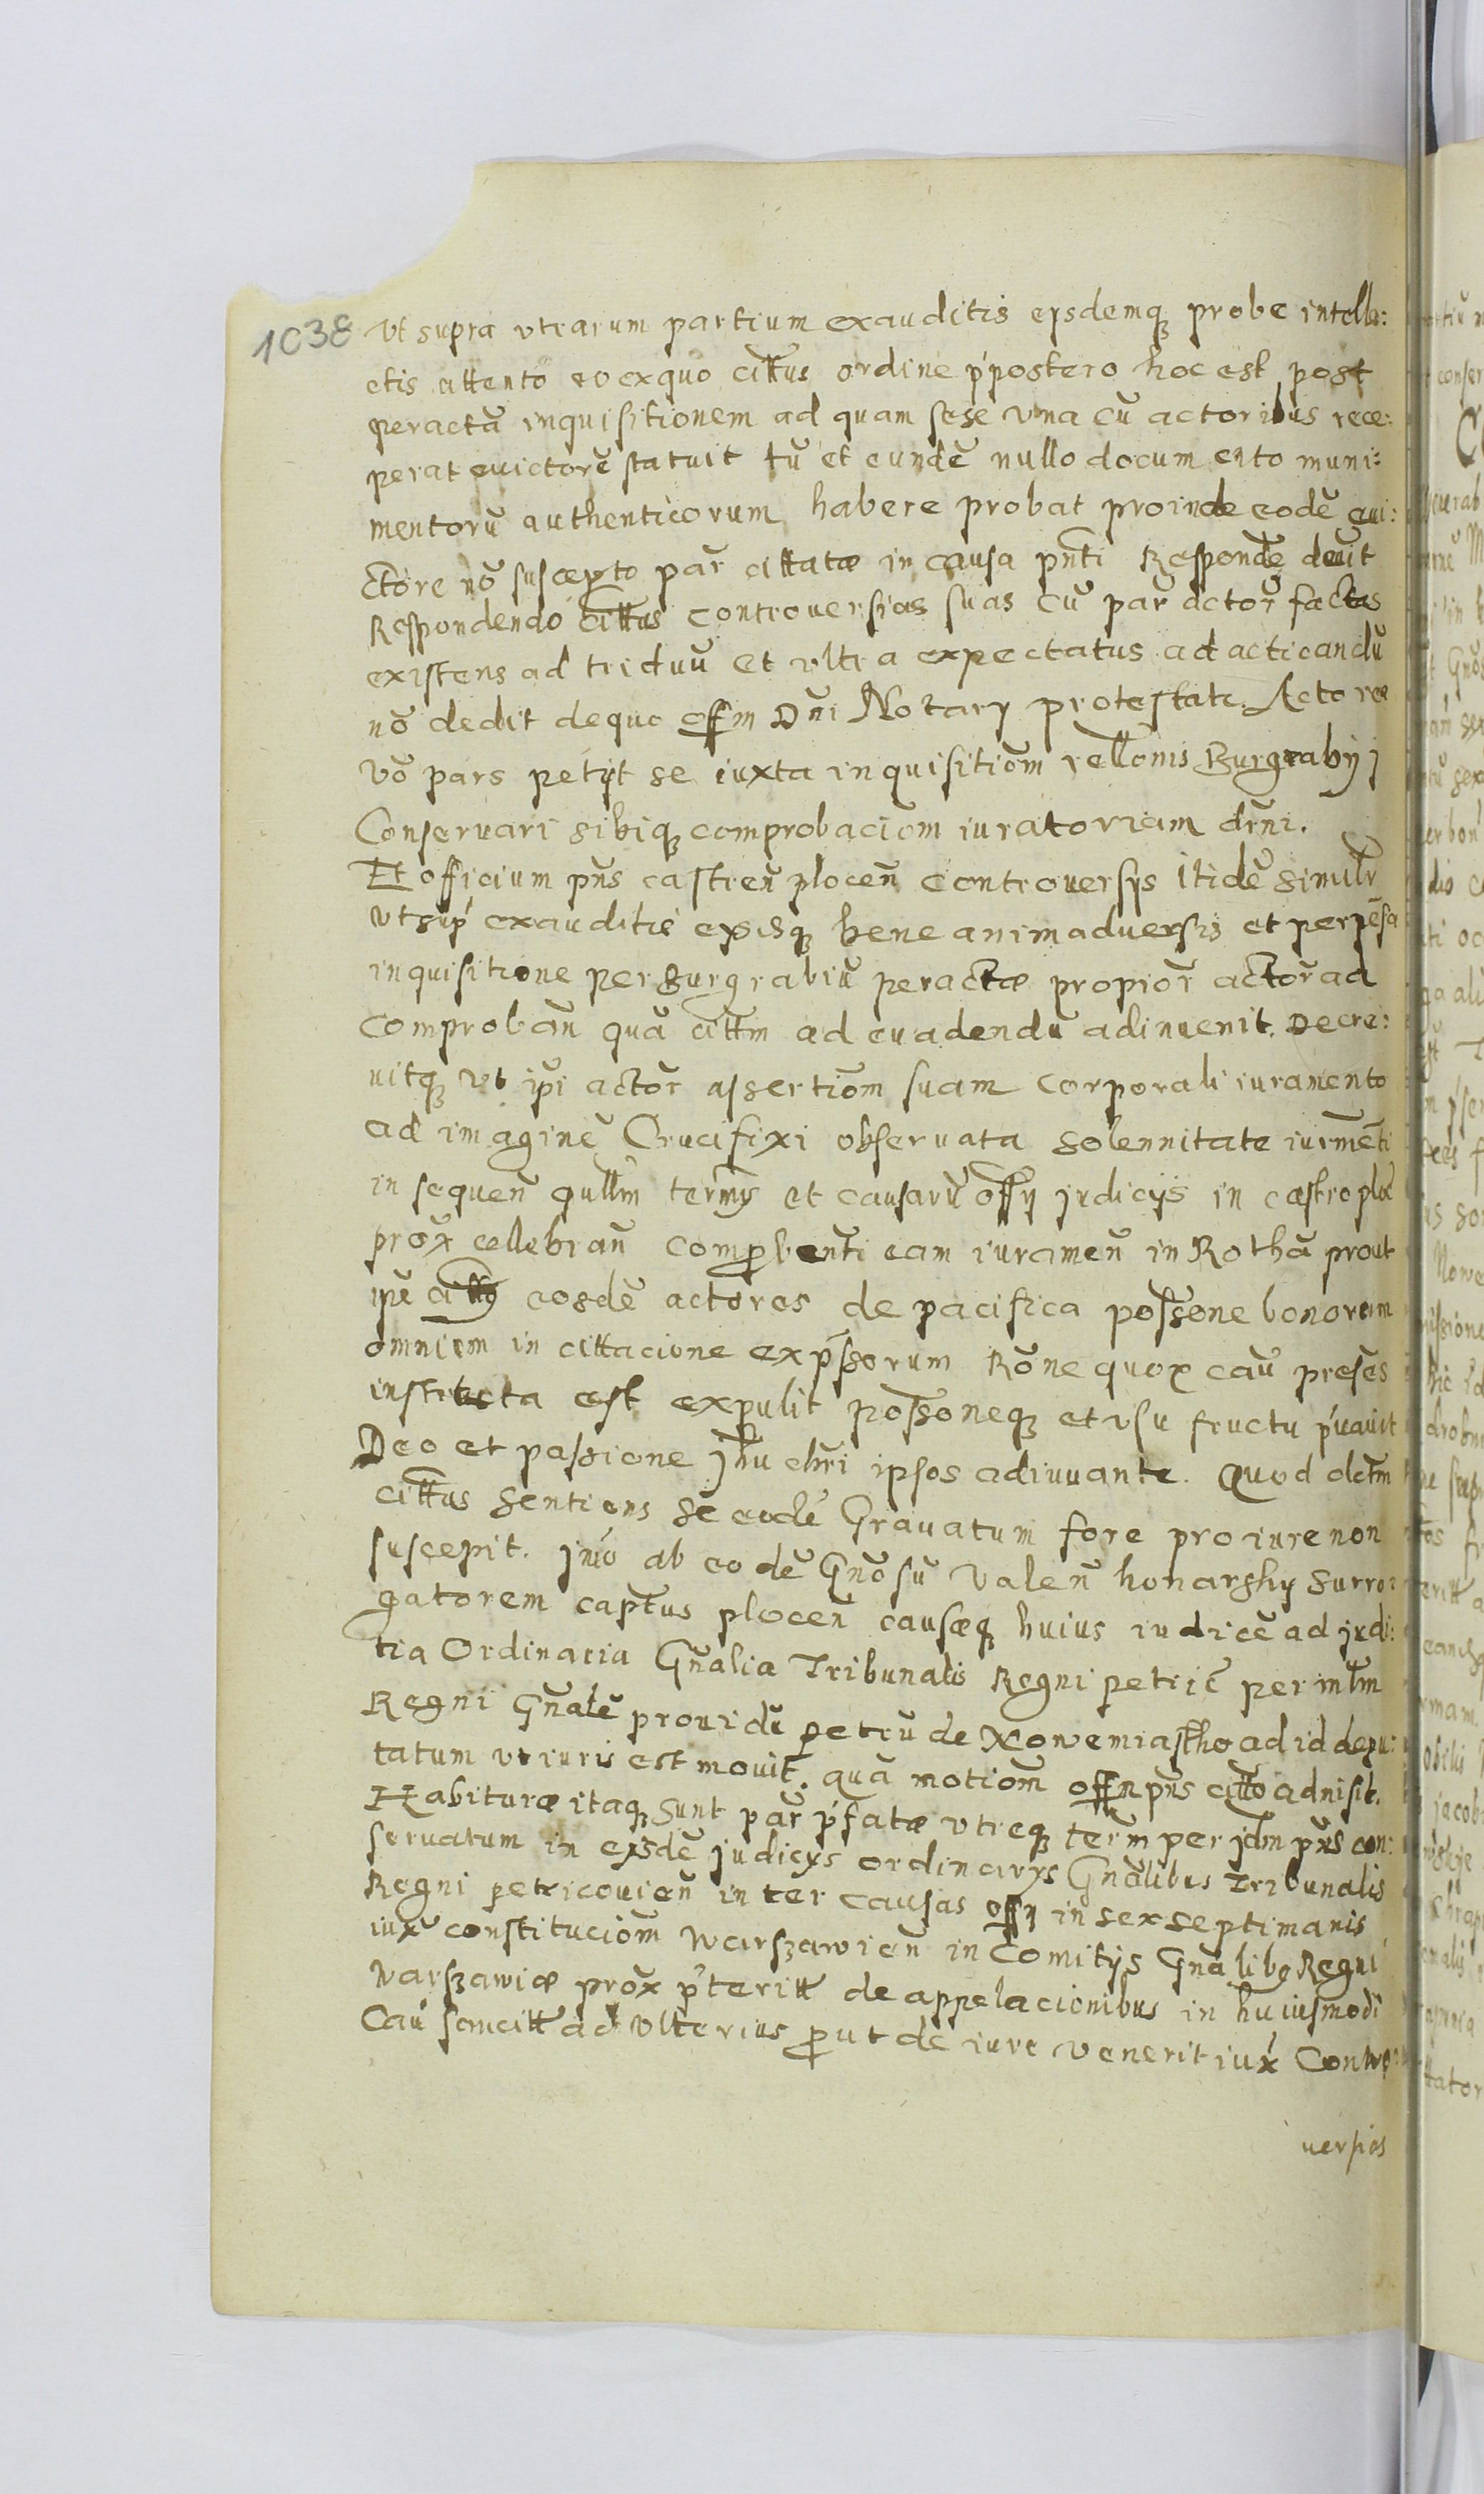 1038
Vt supra vtrarum partium exauditis eysdemq probe intelle:
ctis attento eo exquo cittus ordine ppostero hoc est post
peractã inquisitionem ad quam sese vna cũ actoribus rece:
perat euictorẽ statuit tũ et eundẽ nullo documento muni:
mentorũ authenticorum habere probat proinde eodẽ eui:
ctore nõ suscepto par̃ cittatæ in causa pnti Respondẽ deuit
Respondendo cittus controuersias suas cũ par̃ actor̃ factas
existens ad triduũ et vltra expectatus ad acticandũ
nõ dedit dequo offm Dni Notarÿ protestatr. Actorea
vo pars petÿt se iuxta inquisitiom rellonis Burgrabÿ j
Conseruari sibiq comprobaciom iuratoriam drni.
Et officium pns castreñ ploceñ controuersÿs itidẽ similr
vtsup exauditis eÿsisq bene animaduersis et perpẽsa
inquisitione per Burgrabiũ peractæ propior̃ actor̃ ad
comprobañ quã cittm ad euadendũ adinuenit. Decre:
uitq vt ipi actor̃ assertiom suam corporali iuramento
ad imaginẽ Crucifixi obseruata solennitate iurmẽti
in sequeñ qullm termÿ et causarũ offÿ judicÿs in castro ploc
prox cellebrañ comprobenti eam iurameñ in Rothã prout
ipe cittus eosdẽ actores de pacifica possone bonorum
omnium in cittacione expssorum Rõne quor cau presẽs
instituta est expulit possoneq et vsu fructu puauit
Deo et passione jhu chri ipsos adiuuante. Quod dctm
cittus sentiens se eodẽ Grauatum fore pro iure non
suscepit. jmo ab eodẽ Gnosũ Valeñ honarskÿ surro:
gatorem captus ploceñ causæq huius iudicẽ ad judi:
tia Ordinaria Gnalia Tribunalis Regni petric per mlm
Regni Gnalẽ prouidũ petrũ de Nowemiastho ad id depu:
tatum vt iuris est mouit. quã motiom offm pns citto admisit.
Habituræ itaq sunt par̃ pfatæ vtreq term per jdm pns con:
seruatum in eÿsdẽ judicÿs ordinarÿs Gnalibus Tribunalis
Regni petricouieñ inter causas offÿ in sex septimanis
iux constituciom Warszawieñ in Comitÿs Gnalibq Regni
Varszawiæ prox pteritt de appelacionibus in huiusmodi
Cau sancitt ad Vlterius prout de iure venerit iux Contro:
uersias